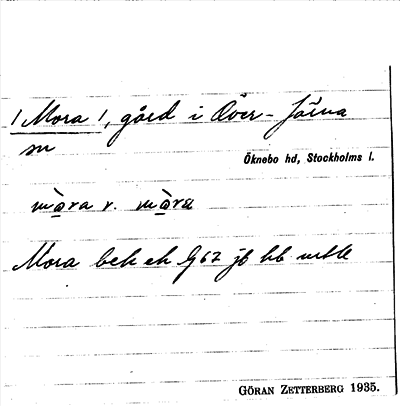 /Mora/, gård i Över-Järna
sn
Öknebo hd, Stockholms l.
mò̱ra v. mò̱ra
Mora bek ek G62 jb bb
GÖRAN ZETTERBERG 1935.